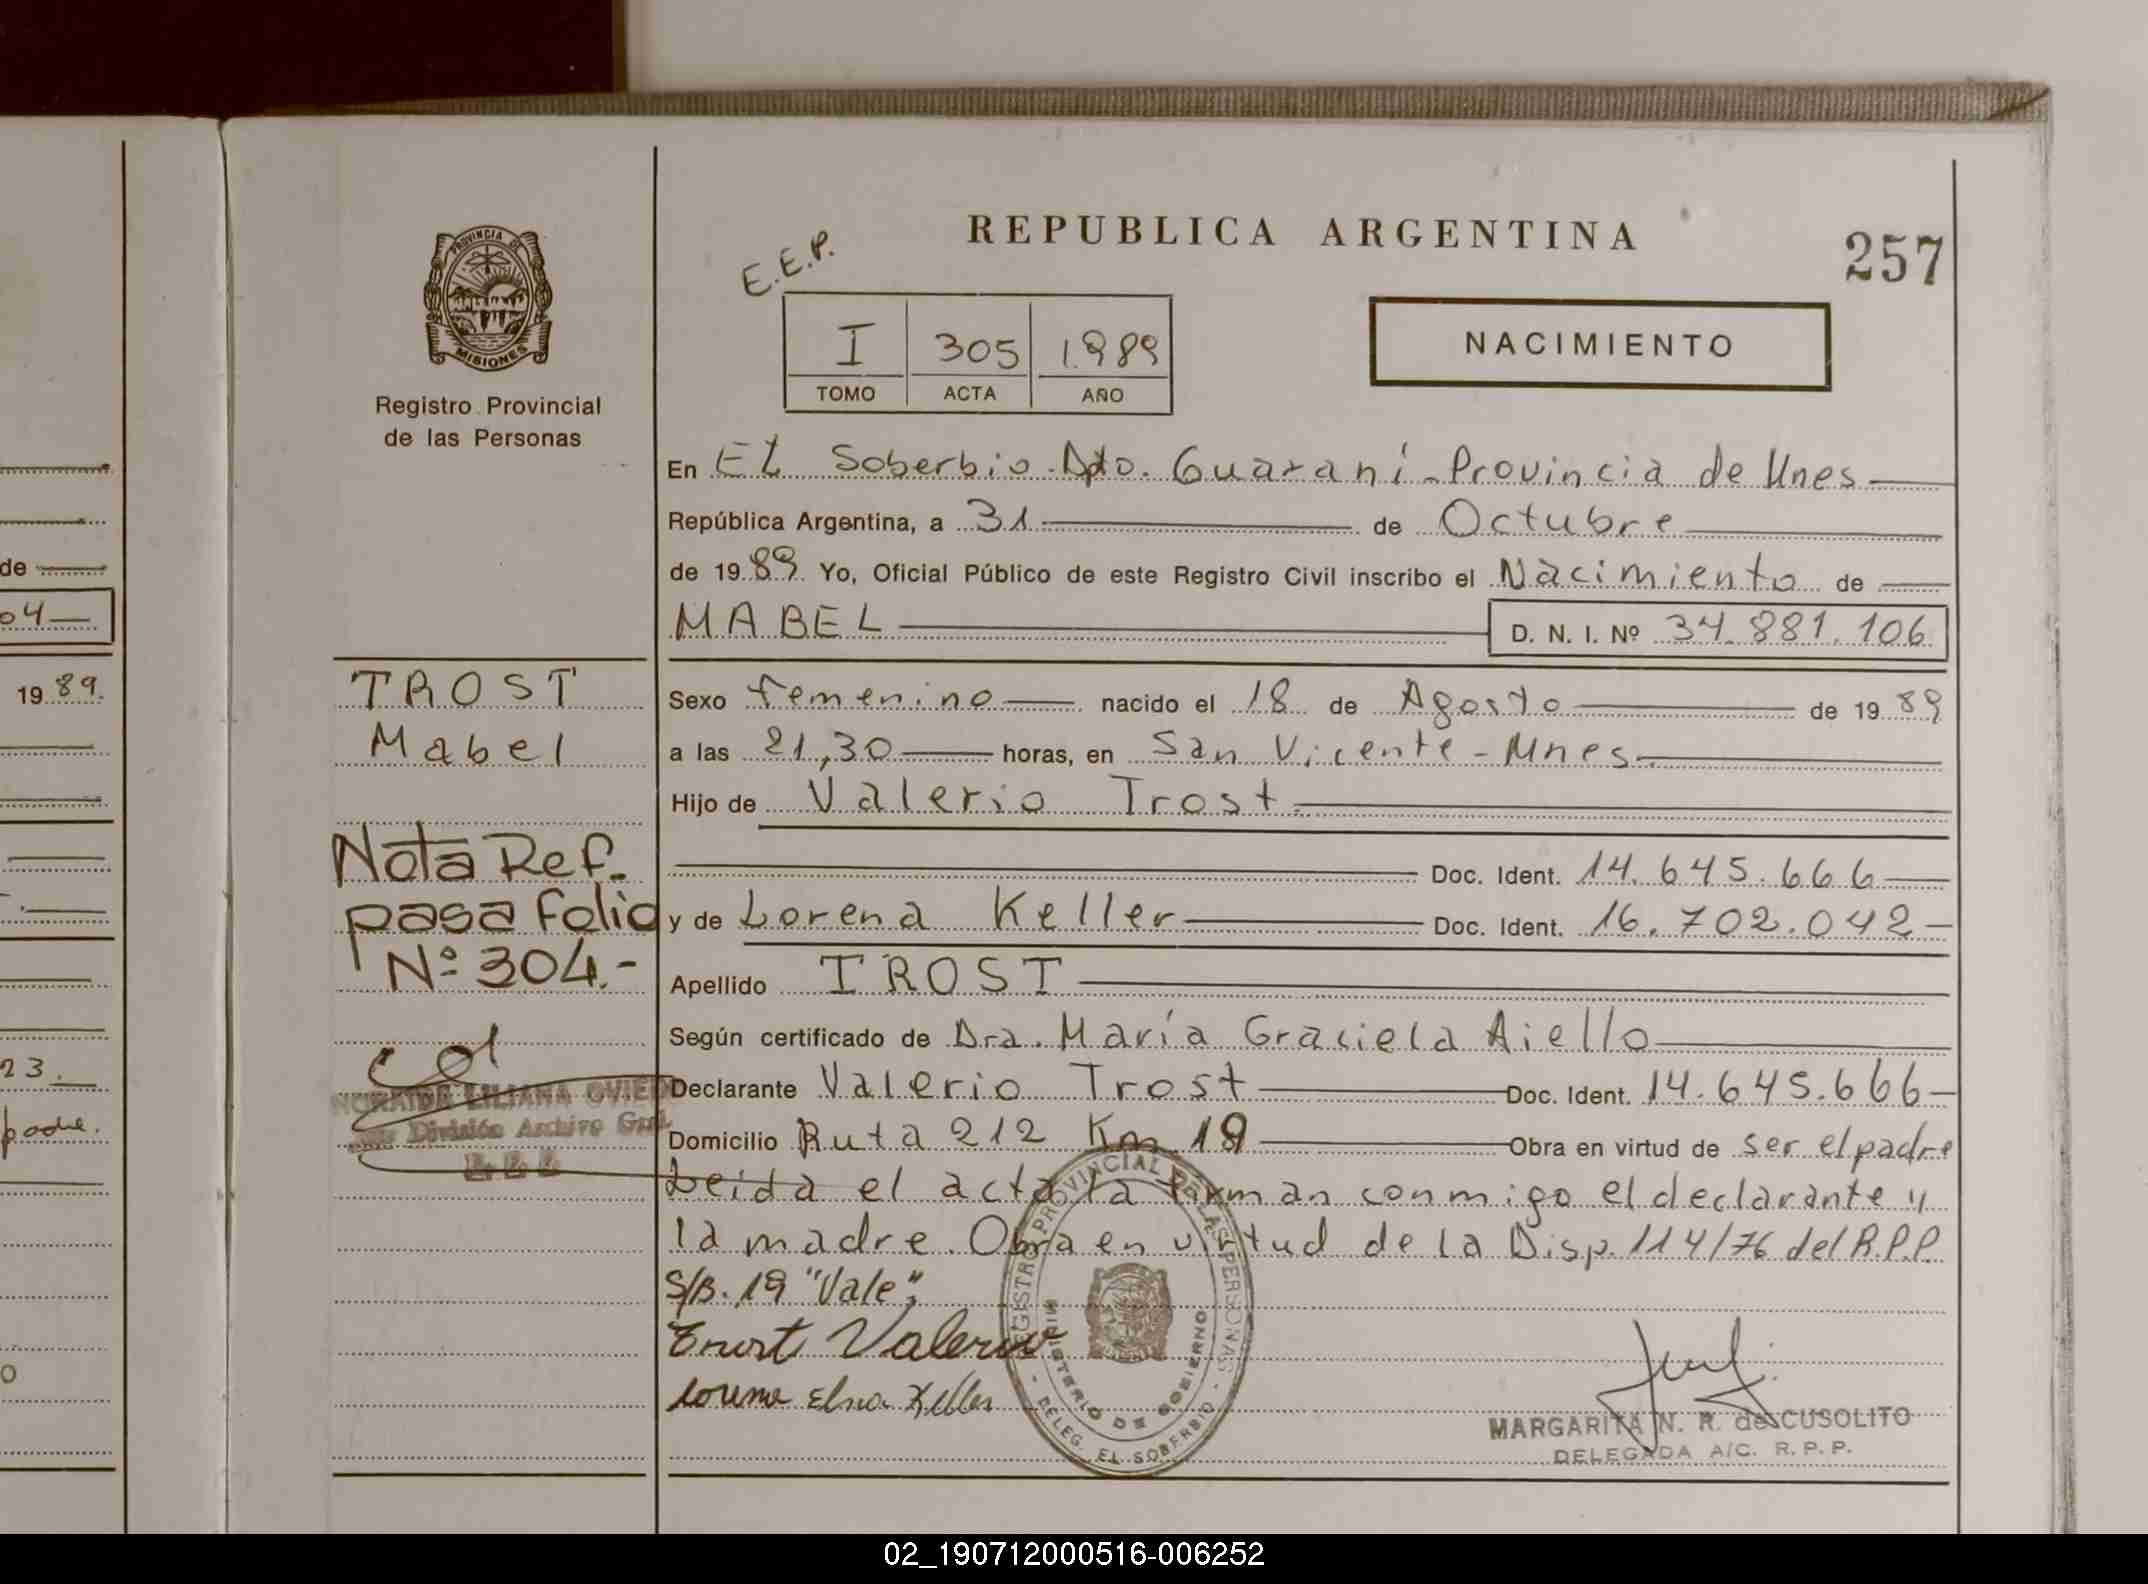 REPUBLICA ARGENTINA
257
E.E.P.
I 305 1.989
TOMO ACTA AÑO
NACIMIENTO
PROVINCIA DE
MISIONES
Registro Provincial
de las Personas
En EL Soberbio. Dpto. Guaraní. Provincia de Mnes
República Argentina, a 31 de Octubre
de 1989 Yo, Oficial Público de este Registro Civil inscribo el Nacimiento de
MABEL D. N. I. Nº 34.881.106
TROST
Mabel
Nota Ref.
pasa folio
Nº 304.-
NORAIDA LILIANA OVIEDO
División Archivo Gral.
Sexo femenino nacido el 18 de Agosto de 1989
a las 21,30 horas, en San Vicente - Mnes.
Hijo de Valerio Trost.
Doc. Ident. 14.645.666
y de Lorena Keller Doc. Ident. 16.702.042
Apellido TROST
Según certificado de Dra. María Graciela Aiello
Declarante Valerio Trost Doc. Ident. 14.645.666
Domicilio Ruta 212 Km 19 Obra en virtud de ser el padre
Leida el acta la firman conmigo el declarante y
la madre. Obra en virtud de la Disp. 114/76 del R.P.P.
S/B. 19 "Vale";
Valerio
Lorena Elsa Keller
REGISTRO PROVINCIAL DE LAS PERSONAS - DELEG. EL SOBERBIO -
MINISTERIO DE GOBIERNO
MARGARITA N. R. de CUSOLITO
DELEGADA A/C. R. P. P.
de
04
19 89.
23.
padre.
O
02_190712000516-006252